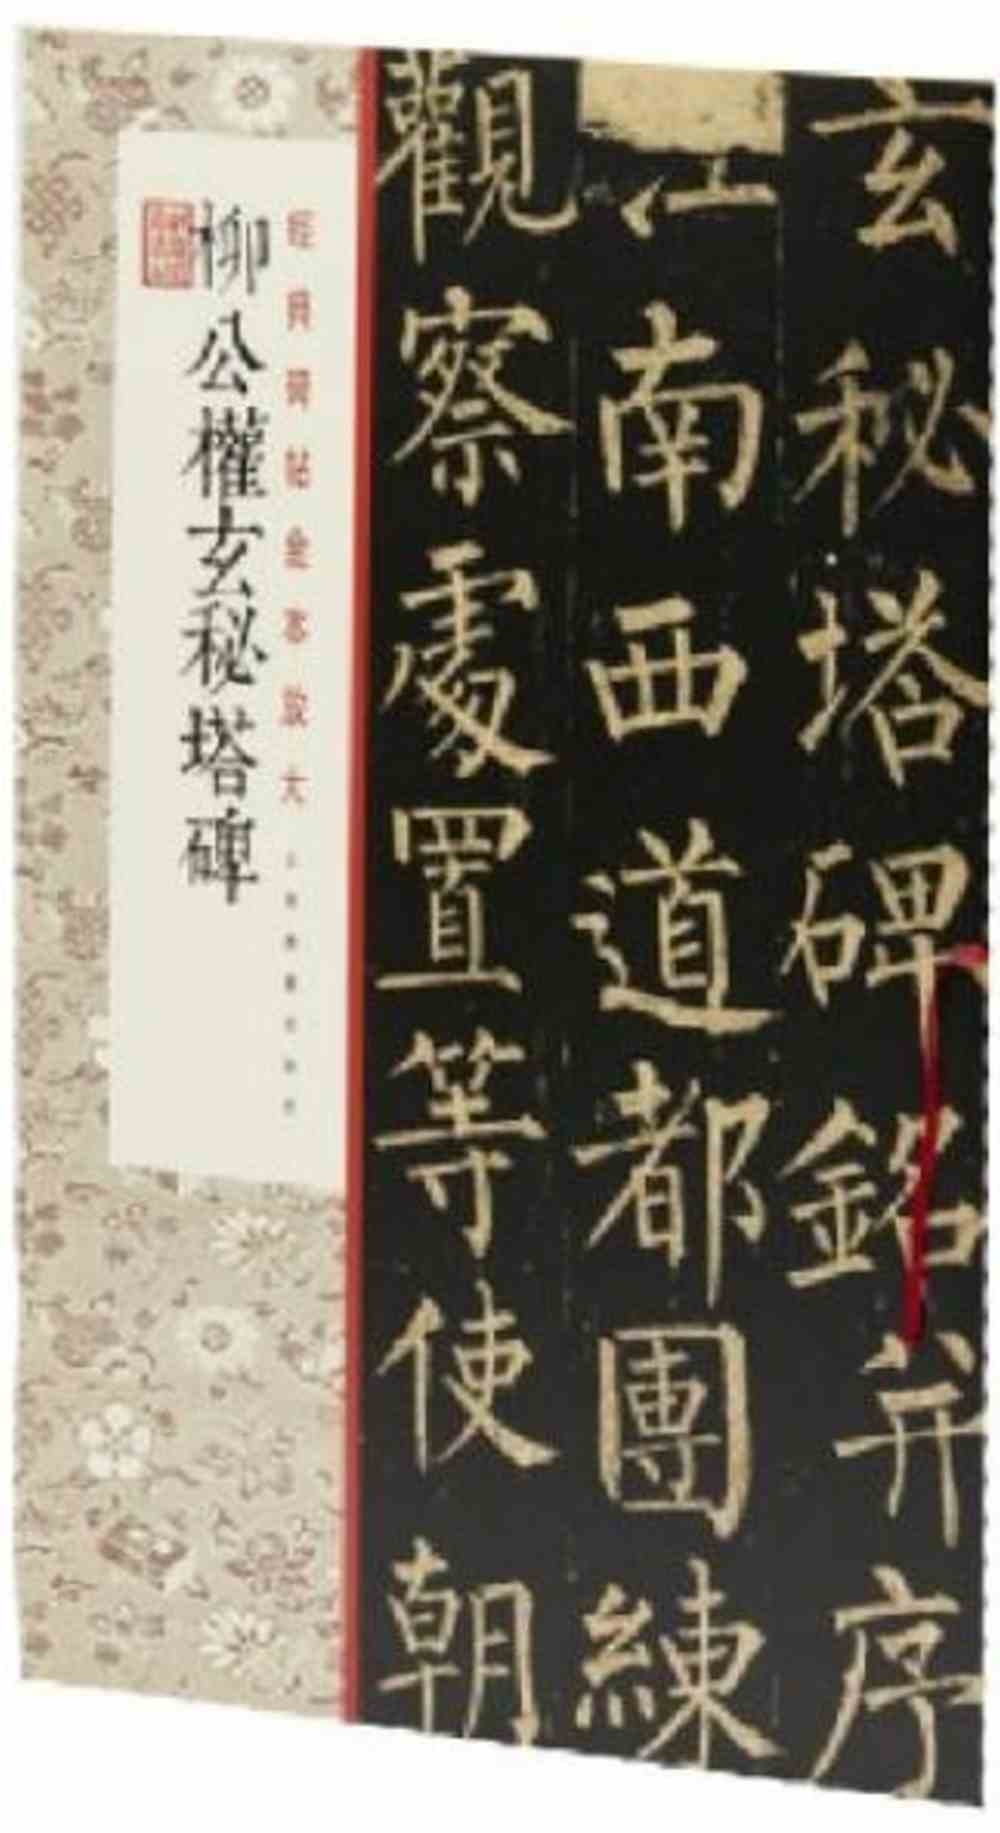 玄秘塔碑銘并序
江南西道都團練
觀察處置等使朝
經典碑帖全本放大
柳公權玄秘塔碑